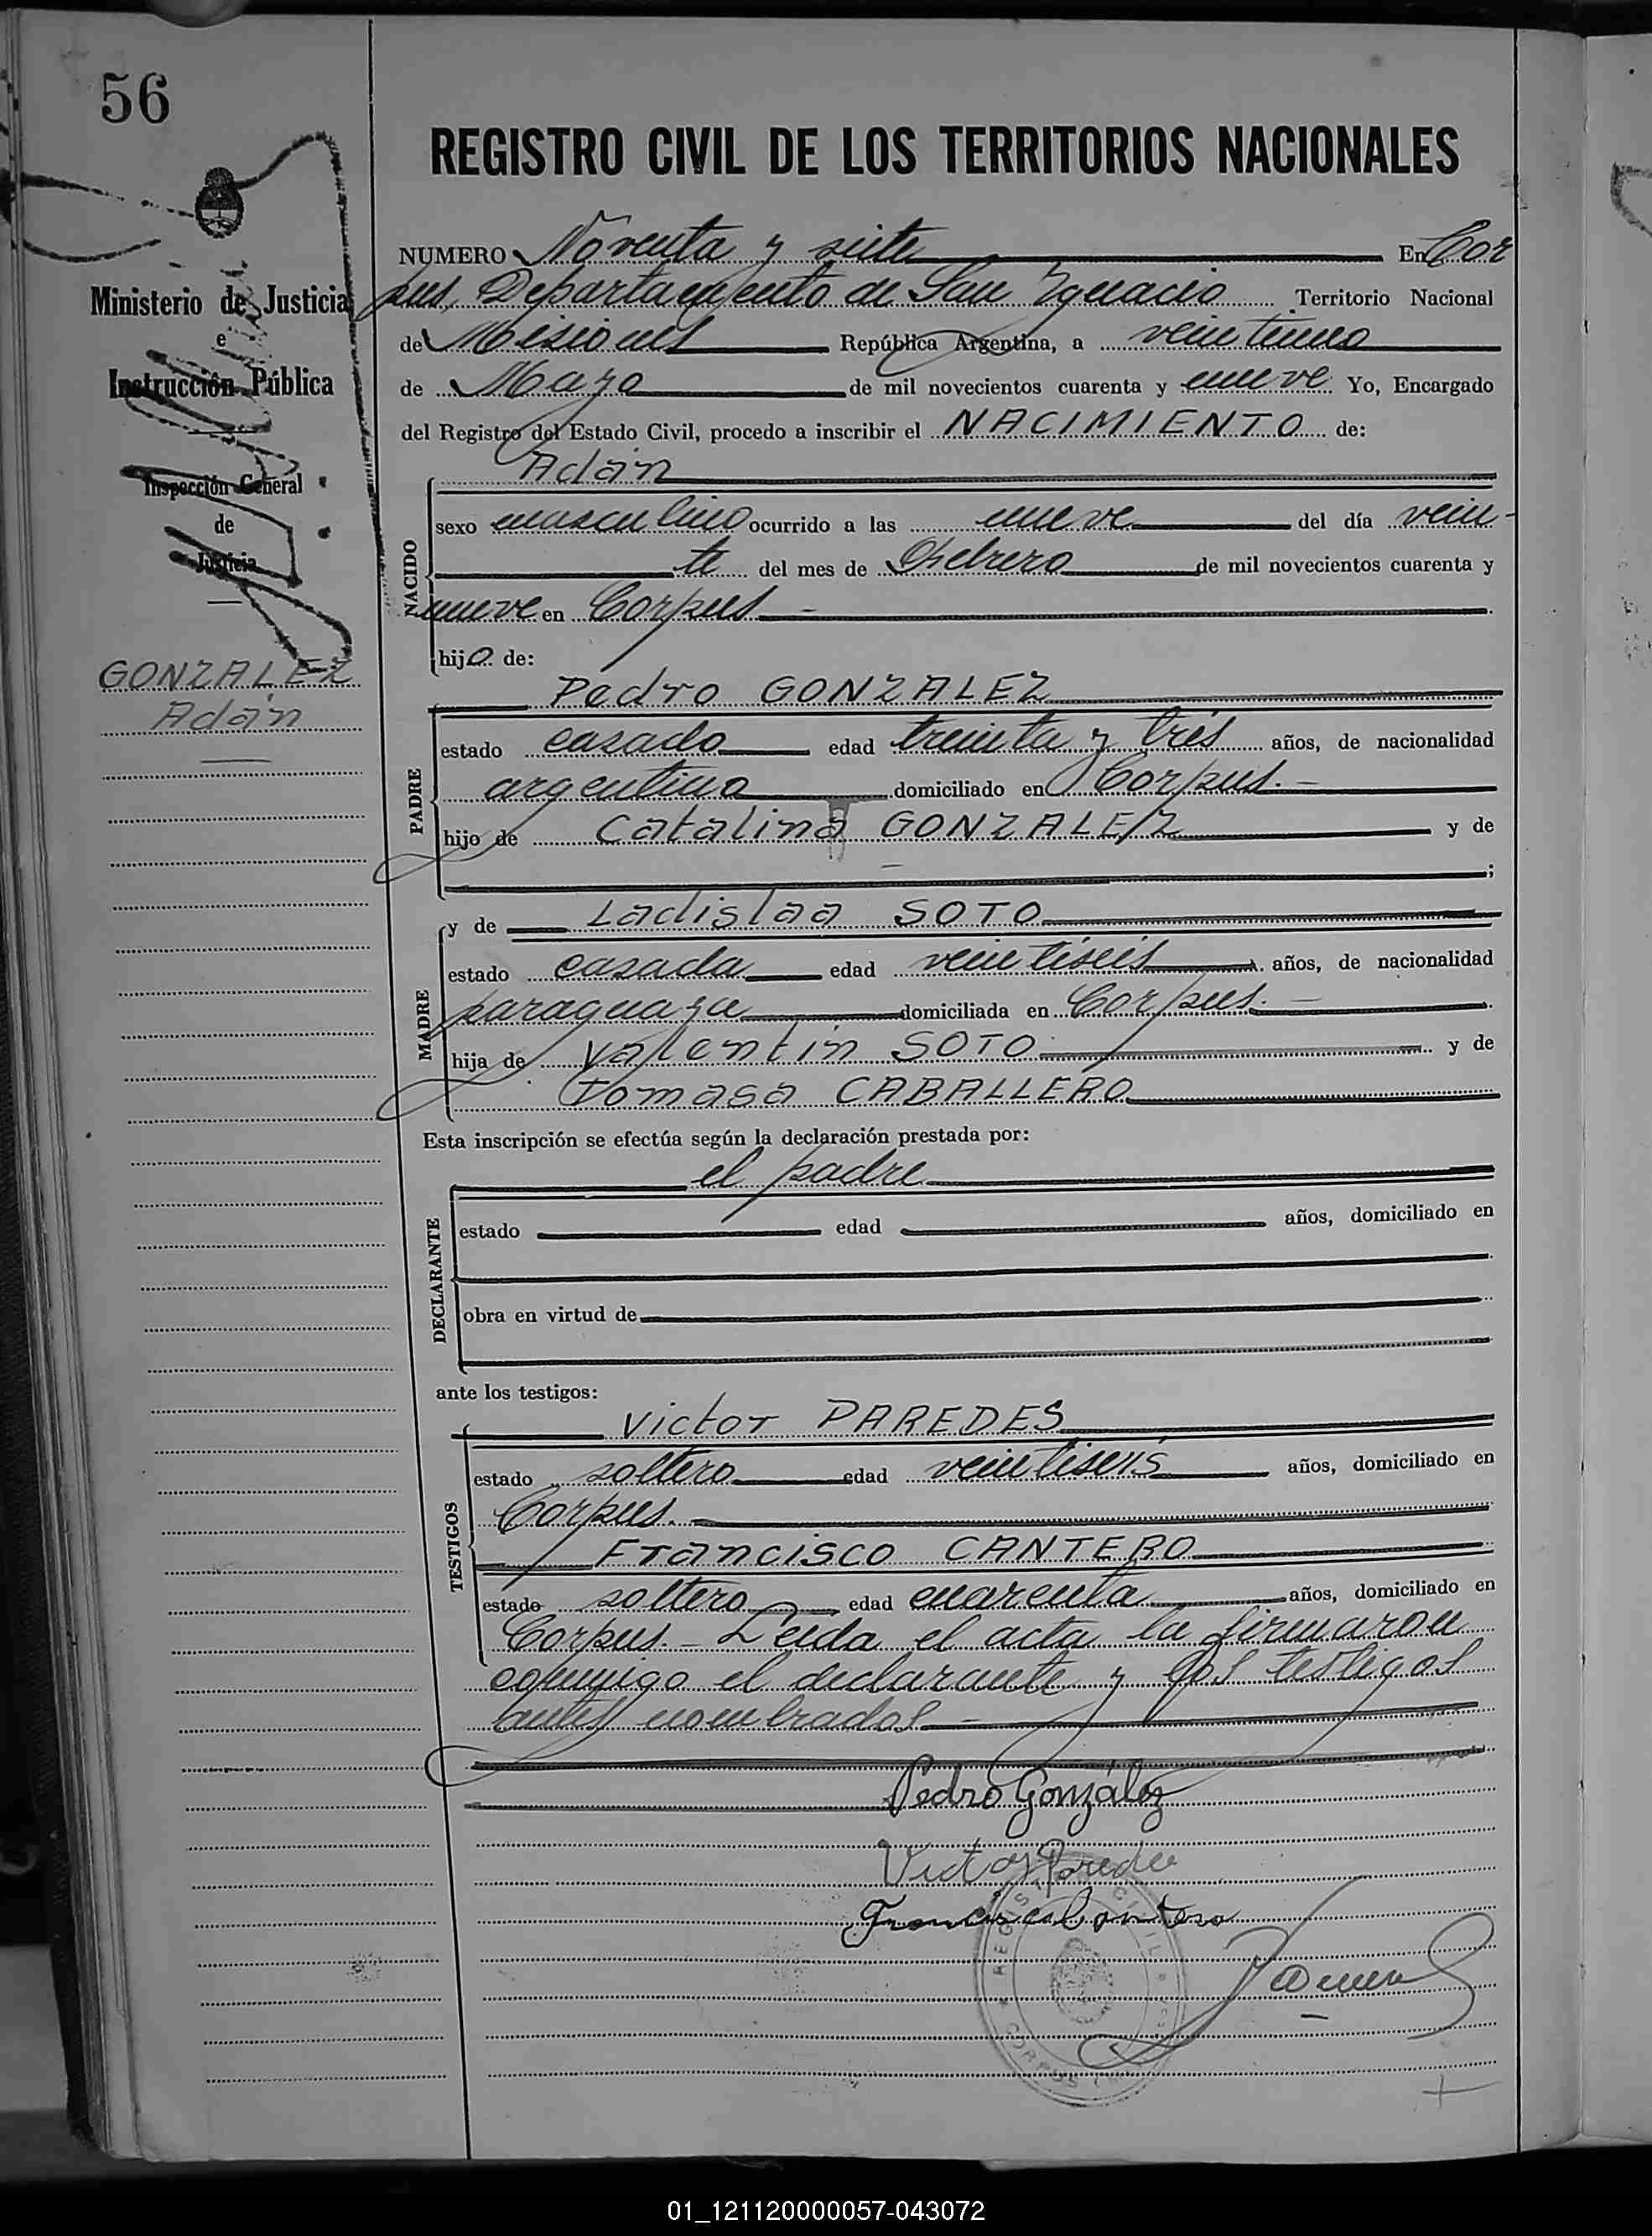 56
REGISTRO CIVIL DE LOS TERRITORIOS NACIONALES
NUMERO Noventa y siete En Cor
Ministerio de Justicia
pus, Departamento de San Ignacio Territorio Nacional
e
de Misiones República Argentina, a veintiuno
Instrucción Pública
de Mayo de mil novecientos cuarenta y nueve Yo, Encargado
del Registro del Estado Civil, procedo a inscribir el NACIMIENTO de:
Adán
Inspección General
de
Justicia
sexo masculino ocurrido a las nueve del día vein-
te del mes de Febrero de mil novecientos cuarenta y
NACIDO
nueve en Corpus
hijo de:
GONZALEZ
Adán
Pedro GONZALEZ
estado casado edad treinta y trés años, de nacionalidad
PADRE
argentina domiciliado en Corpus.-
hijo de Catalina GONZALEZ y de
;
y de Ladislaa SOTO
estado casada edad veintiseis años, de nacionalidad
MADRE
paraguaya domiciliada en Corpus.-
hija de Valentín SOTO y de
Tomasa CABALLERO
Esta inscripción se efectúa según la declaración prestada por:
el padre
DECLARANTE
estado edad años, domiciliado en
obra en virtud de
ante los testigos:
Victor PAREDES
estado soltero edad veintiseis años, domiciliado en
TESTIGOS
Corpus.
Francisco CANTERO
estado soltero edad cuarenta años, domiciliado en
Corpus.- Leida el acta la firmaron
conmigo el declarante y los testigos
antes nombrados
Pedro González
Victor Paredes
Francisco Cantero
REGISTRO CIVIL
CORPUS
01_121120000057-043072